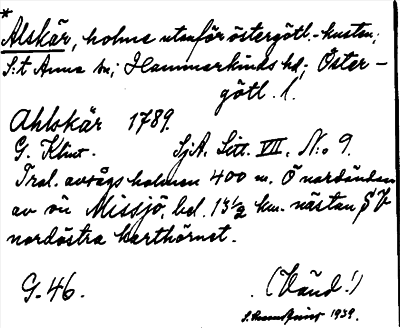 *
Alskär, holme utanför östergötl.-kusten;
S:t Anna sn; Hammarkinds hd; Öster-
götl. l.
Ahlskär 1789.
G. Klint. SjA. Litt. VII. N:o 9.
Trol. avsågs holmen 400 m. Ö nordändan
av ön Missjö, bel. 13 1/2 km. nästan § V
nordöstra karthörnet.
G. 46. (Vänd!)
1939.